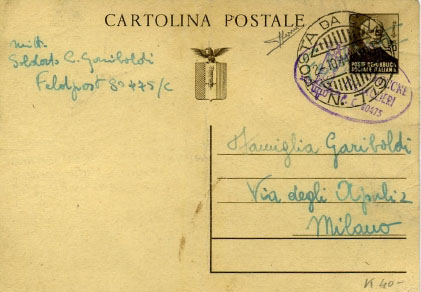 CARTOLINA POSTALE
mitt.
Soldato C. Gariboldi
Feldpost 80475/C
POSTA DA CAMPO
POSTE REPUBBLICA
SOCIALE ITALIANA
80475
Famiglia Gariboldi
Via degli Apuli 2
Milano
K 40-